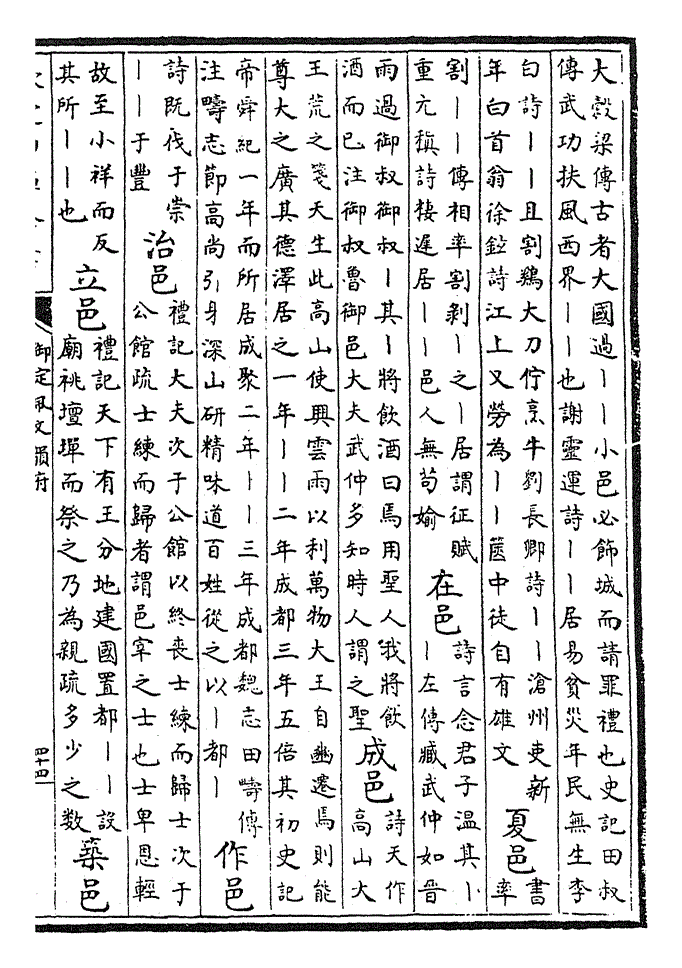 大穀梁傳古者大國過丨丨小邑必飾城而請罪禮也史記田叔
傳武功扶風西界丨丨也謝靈運詩丨丨居易貧災年民無生李
白詩丨丨且割鷄大刀佇烹牛劉長卿詩丨丨滄州吏新
年白首翁徐鉉詩江上又勞為丨丨篋中徒自有雄文
夏邑
書
率
割丨丨傳相率割剥丨之丨居謂征賦
重亢稹詩棲遲居丨丨邑人無苟媮
在邑
詩言念君子溫其丨
丨左傳臧武仲如晉
雨過御叔御叔丨其丨將飲酒曰焉用聖人我將飲
酒而已注御叔魯御邑大夫武仲多知時人謂之聖
成邑
詩天作
高山大
王荒之箋天生此高山使興雲雨以利萬物大王自豳遷焉則能
尊大之廣其德澤居之一年丨丨二年成都三年五倍其初史記
帝舜紀一年而所居成聚二年丨丨三年成都魏志田疇傳
注疇志節高尚引身深山研精味道百姓從之以丨都丨
作邑
詩既伐于崇
丨丨于豐
治邑
禮記大夫次于公館以終喪士練而歸士次于
公館疏士練而歸者謂邑宰之士也士卑恩輕
故至小祥而反
其所丨丨也
立邑
禮記天下有王分地建國置都丨丨設
廟祧壇墠而祭之乃為親疏多少之數
築邑
御定佩文韻府
四十四